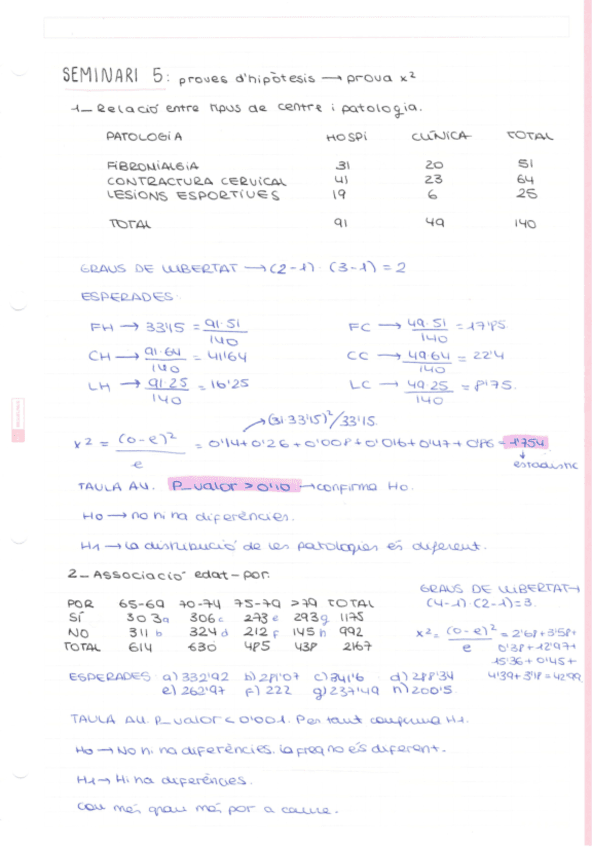 SEMINARI 5: proves d'hipòtesis → prova x²
1_ Relació entre tipus de centre i patologia.
PATOLOGIA HOSPI CLÍNICA TOTAL
FIBROMIALGIA 31 20 51
CONTRACTURA CERVICAL 41 23 64
LESIONS ESPORTIVES 19 6 25
TOTAL 91 49 140
GRAUS DE LLIBERTAT → (2-1) (3-1) = 2
ESPERADES:
FH → 33'15 = 91·51/140 FC → 49·51/140 = 17'85
CH → 91·64/140 = 41'64 CC → 49·64/140 = 22'4
LH → 91·25/140 = 16'25 LC → 49·25/140 = 8'75.
→ (31 33'15)²/33'15.
x² = (o-e)²/e = 0'14+0'26+0'008+0'016+0'47+0'86 = 1'754
↓
estadístic
TAULA A4. P_valor > 0'10 → confirma Ho.
Ho → no hi ha diferències.
H1 → la distribució de les patologies és diferent.
2_ Associació edat-por.
POR 65-69 70-74 75-79 >79 TOTAL
SÍ 303a 306c 273e 293g 1175
NO 311b 324d 212f 145h 992
TOTAL 614 630 485 438 2167
GRAUS DE LLIBERTAT →
(4-1) (2-1) = 3.
x² = (o-e)²/e = 2'68+3'58+
0'38+12'97+
15'36+0'45+
4'39+3'18 = 42'99
ESPERADES a) 332'92 b) 281'07 c) 341'6 d) 288'34
e) 262'97 f) 222 g) 237'49 h) 200'5.
TAULA A4. P_valor < 0'001. Per tant confirma H1.
Ho → No hi ha diferències. la freq no és diferent.
H1 → Hi ha diferències.
com més gran més por a caure.